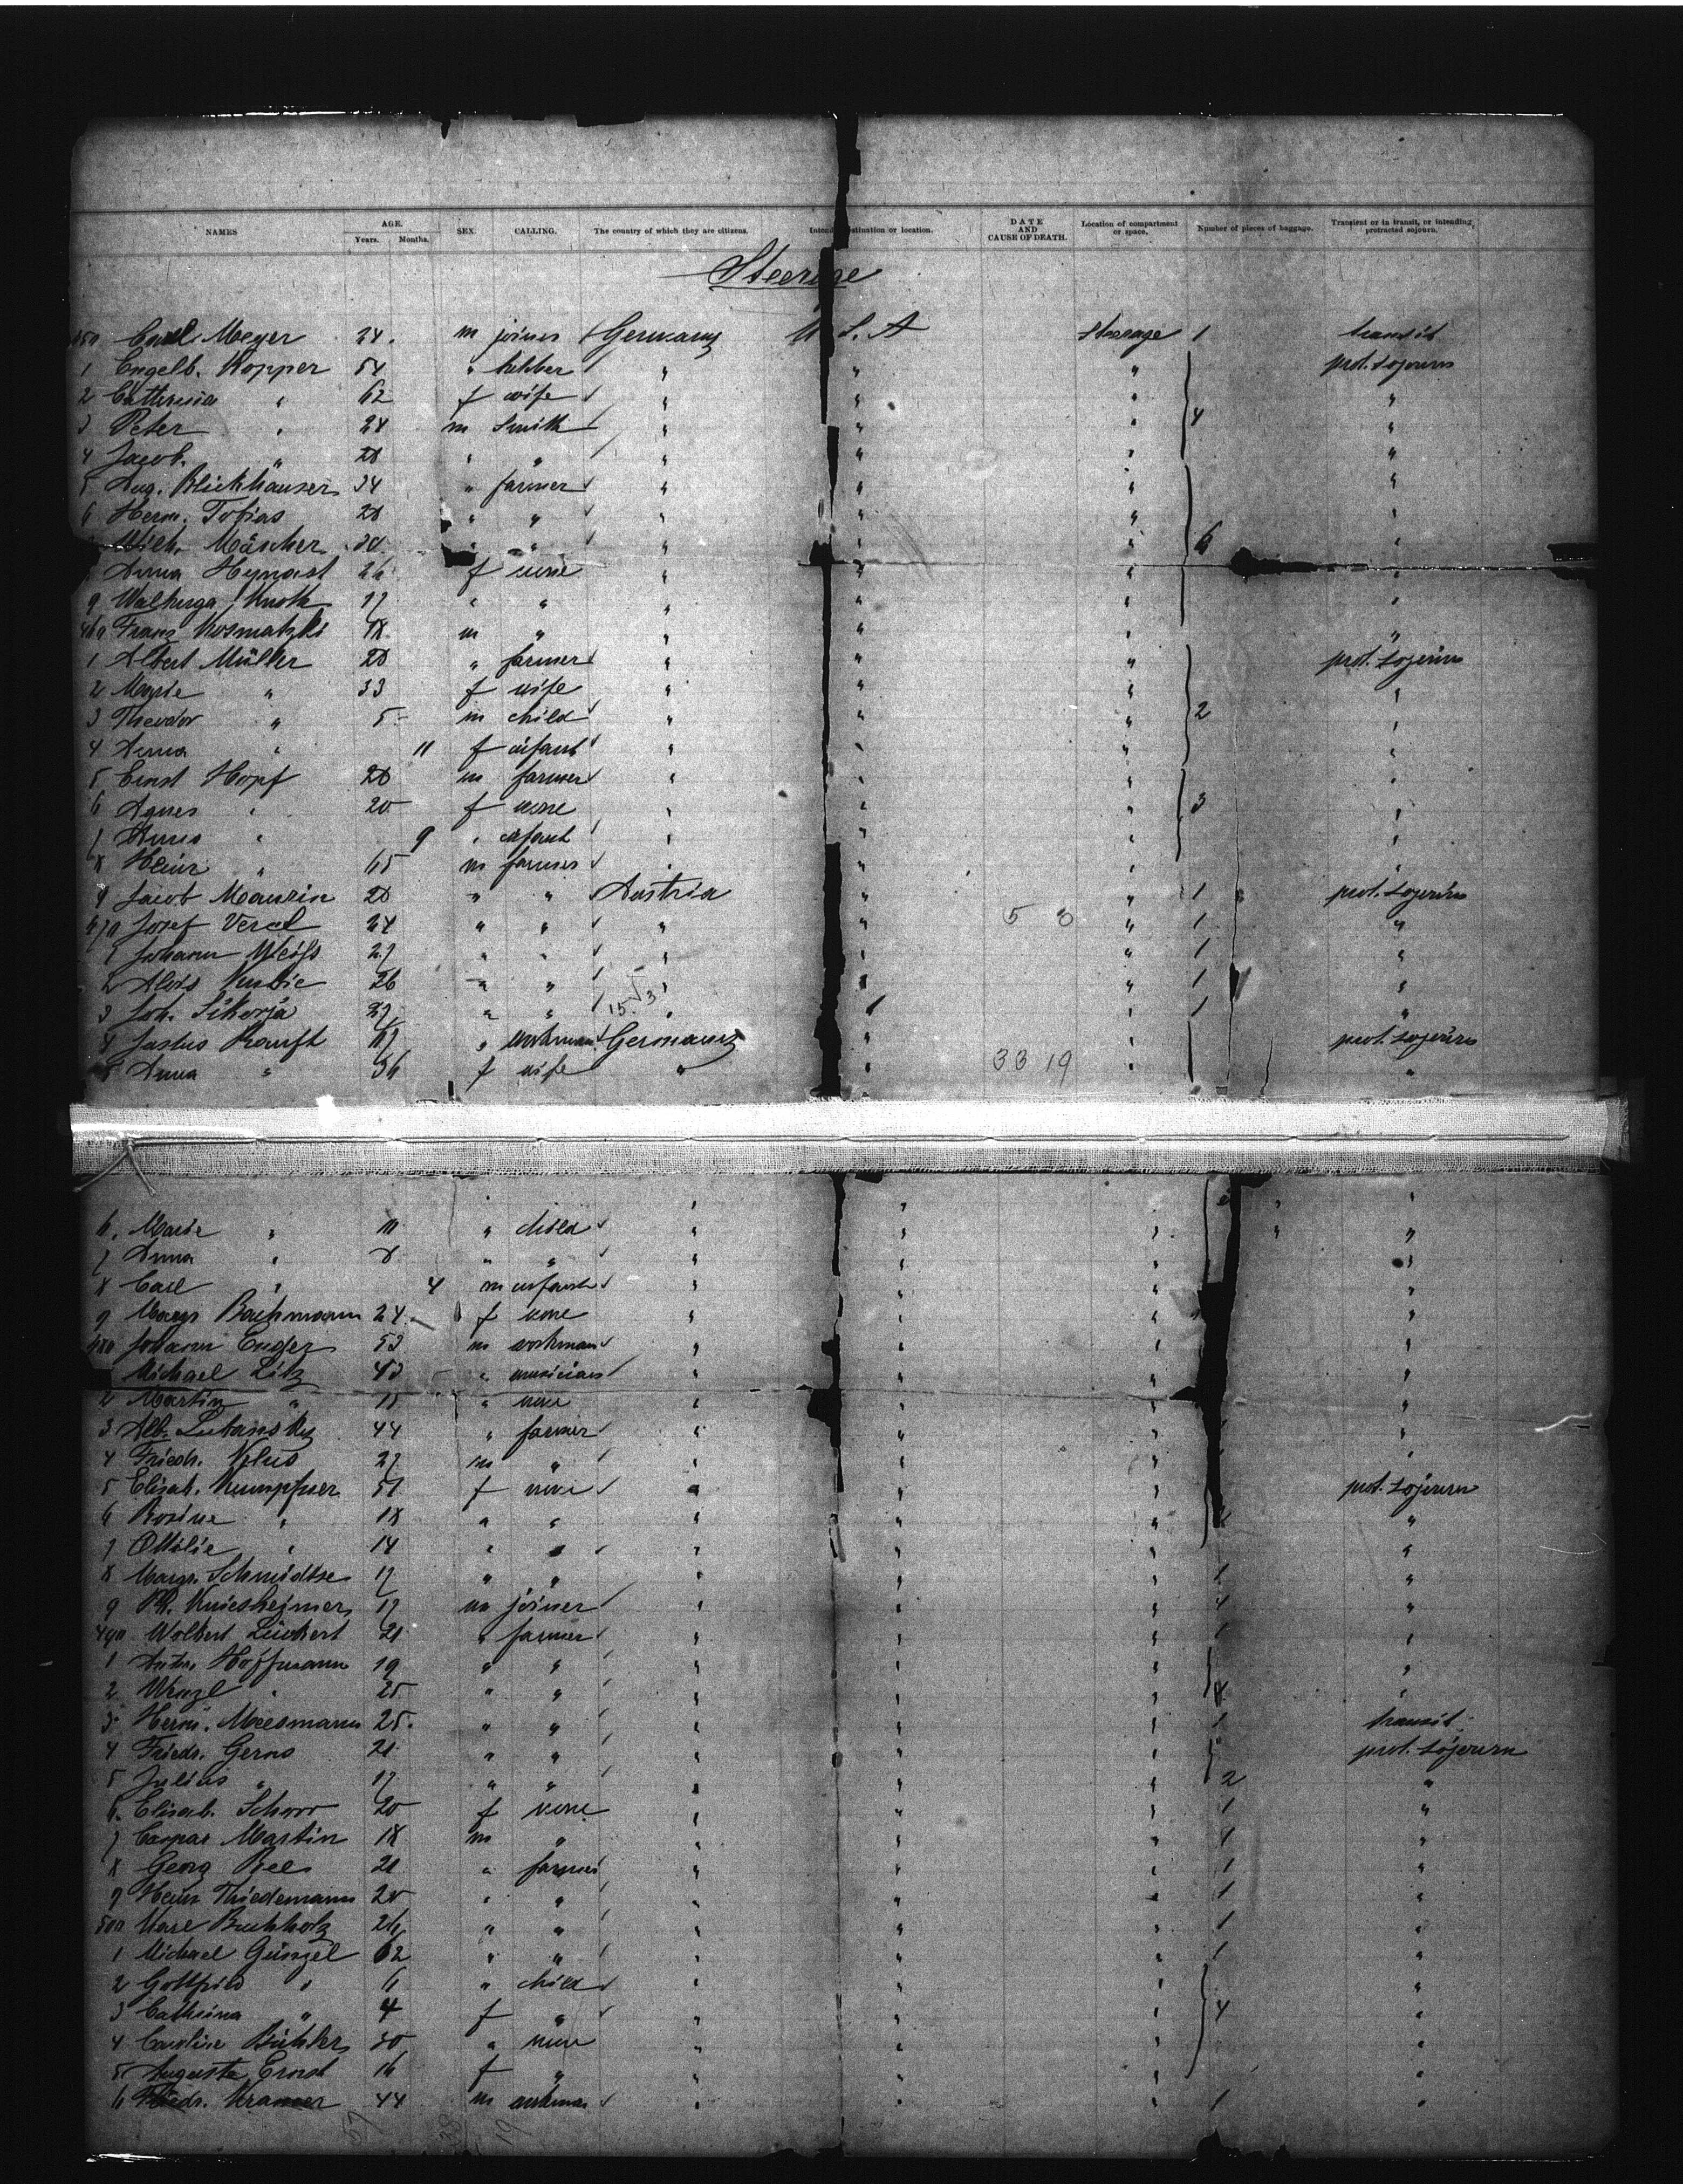 NAMES AGE. Years. Months. SEX. CALLING. The country of which they are citizens. Intend stination or location. DATE AND CAUSE OF DEATH. Location of compartment or space. Number of pieces of baggage. Transient or in transit, or intending protracted sojourn.
Steerage
Carl Meyer 24 m joiner Germany U.S.A Steerage 1 transit
1 Engelb. Kopper 54 " " " " prot. sojourn
2 Cathrina " 62 f wife " " " "
3 Peter " 24 m Smith " " " 4 "
4 Jacob " 28 " " " " " "
5 Aug. Blickhäuser 34 " farmer " " " "
6 Herm. Tobias 28 " " " " " "
Wilh. Mäscher " " " " " 6
Anna Hynast 26 f none " " " "
9 Walburga Knoth 17 " " " " " "
460 Franz Kosmatzki 18 m " " " " "
1 Albert Müller 28 " farmer " " " prot. sojourn
2 Marie " 33 f wife " " " "
3 Theodor " 5 m child " " " 2 "
4 Anna " 11 f infant " " " "
5 Ernst Hopf 28 m farmer " " " "
6 Agnes " 20 f none " " " 3 "
7 " 9 " infant " " " "
8 Heinr. " 65 m farmer " " " "
9 Jacob Maurin 28 " " Austria " " 1 prot. sojourn
470 Josef 24 " " " " 5 " 1 "
1 Johann Weiss 27 " " " " " 1 "
2 Alois 26 " " " " " 1 "
3 Joh. Sikorja 27 " " 15 3 " " 1 "
4 Justus Ranft 47 " workman Germany " " prot. sojourn
5 Anna " 36 f wife " " 33 19 " "
6. Marie " " child " " " "
7 Anna " 8 " " " " " "
8 Carl " 4 m infant " " " "
9 Marg. Bachmann 24 f none " " " "
480 Johann 53 m workman " " " "
Michael Litz 43 " musician " " " "
2 Martin " " none " " " "
3 Alb. Lutansky 44 " farmer " " " "
4 Friedr. 27 m " " " " "
5 Elisab. Kumpfner 51 f none " " " prot. sojourn
6 Rosine " 18 " " " " " "
7 Ottilie " 14 " " " " " "
8 Marg. Schmidtse 17 " " " " " 1 "
9 Ph. Kniesheimer 17 m joiner " " " 1 "
490 Wolbert Lückert 21 " farmer " " " 1 "
1 Hoffmann 19 " " " " " "
2 Wenzl " 25 " " " " " "
3 Herm. Meesmann 25 " " " " " 1 transit
4 Friedr. Gerns 21 " " " " " prot. sojourn
5 Julius " 17 " " " " " 2 "
6. Elisab. Schorr 20 f none " " " 1 "
7 Caspar Martin 18 m " " " " 1 "
8 Georg Bee 21 " farmer " " " 1 "
9 Heinr. Thiedemann 20 " " " " " 1 "
500 Karl Buchholz 26 " " " " " 1 "
1 Michael Günzel 62 " " " " " 1 "
2 Gottfried " 6 " child " " " "
3 Cathrina " 4 f " " " " 4 "
4 Caroline Bühler 30 " none " " " "
5 Auguste Ernst 16 f " " " " "
6 Friedr. Kramer 44 m workman " " " 1 "
67 38 19